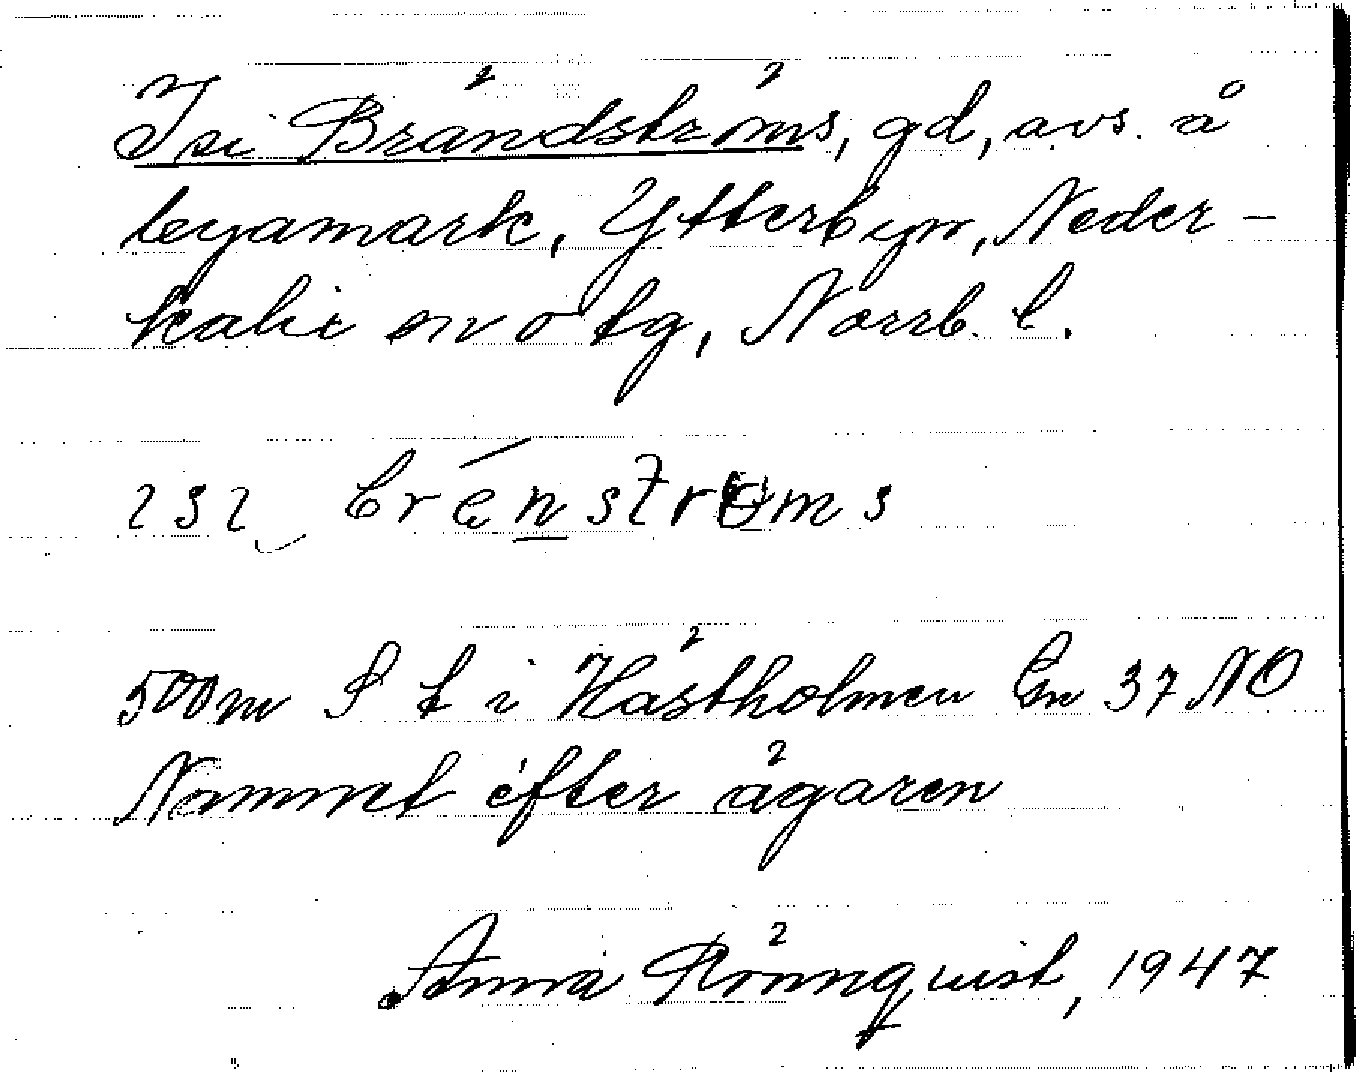 Isi Brändströms, gd, avs. å
byamark, Ytterbyn, Neder-
kalix sn o tg, Norrb. l.
232 brénstroms
500 m S t i Hästholmen En 37 NO
Namnet efter ägaren
Anna Rönnquist, 1947